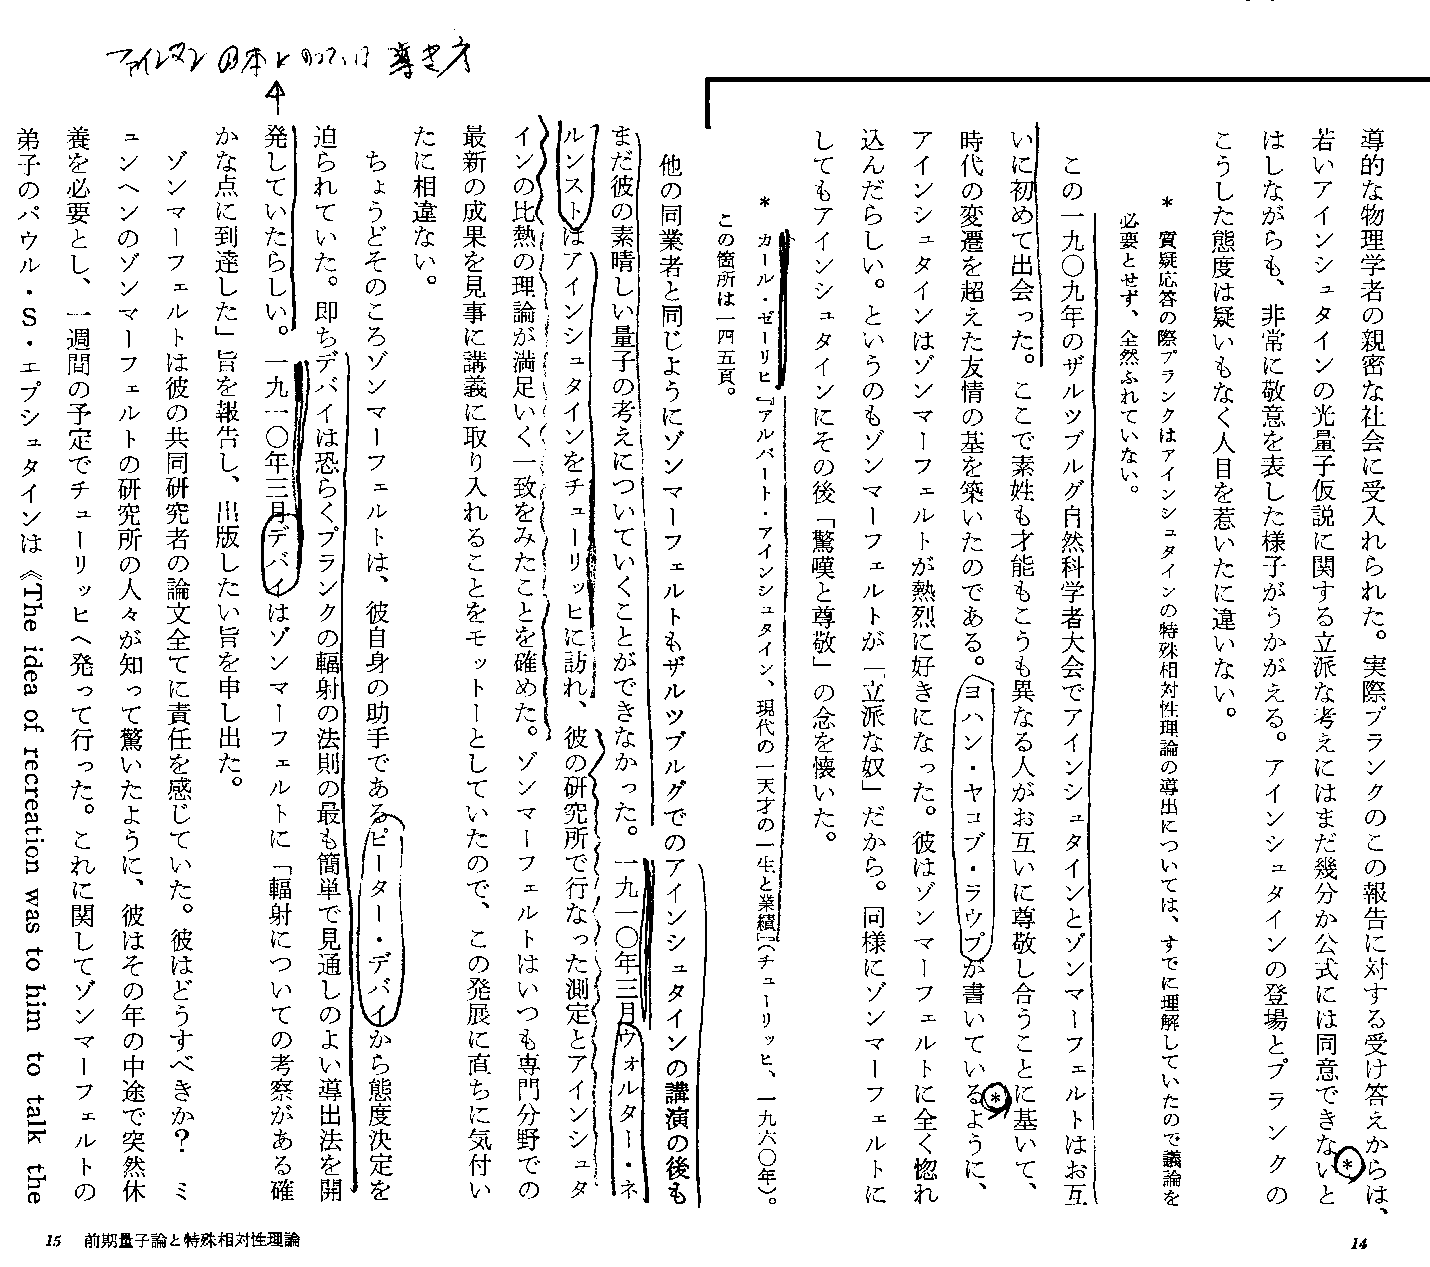 導的な物理学者の親密な社会に受入れられた。実際プランクのこの報告に対する受け答えからは、
若いアインシュタインの光量子仮説に関する立派な考えにはまだ幾分か公式には同意できないと*
はしながらも、非常に敬意を表した様子がうかがえる。アインシュタインの登場とプランクの
こうした態度は疑いもなく人目を惹いたに違いない。
* 質疑応答の際プランクはアインシュタインの特殊相対性理論の導出については、すでに理解していたので議論を
必要とせず、全然ふれていない。
この一九〇九年のザルツブルグ自然科学者大会でアインシュタインとゾンマーフェルトはお互
いに初めて出会った。ここで素姓も才能もこうも異なる人がお互いに尊敬し合うことに基いて、
時代の変遷を超えた友情の基を築いたのである。ヨハン・ヤコブ・ラウプが書いているように、*
アインシュタインはゾンマーフェルトが熱烈に好きになった。彼はゾンマーフェルトに全く惚れ
込んだらしい。というのもゾンマーフェルトが「立派な奴」だから。同様にゾンマーフェルトに
してもアインシュタインにその後「驚嘆と尊敬」の念を懐いた。
* カール・ゼーリヒ『アルバート・アインシュタイン、現代の一天才の一生と業績』(チューリッヒ、一九六〇年)。
この箇所は一四五頁。
他の同業者と同じようにゾンマーフェルトもザルツブルグでのアインシュタインの講演の後も
まだ彼の素晴しい量子の考えについていくことができなかった。一九一〇年三月ウォルター・ネ
ルンストはアインシュタインをチューリッヒに訪れ、彼の研究所で行なった測定とアインシュタ
インの比熱の理論が満足いく一致をみたことを確めた。ゾンマーフェルトはいつも専門分野での
最新の成果を見事に講義に取り入れることをモットーとしていたので、この発展に直ちに気付い
たに相違ない。
ちょうどそのころゾンマーフェルトは、彼自身の助手であるピーター・デバイから態度決定を
迫られていた。即ちデバイは恐らくプランクの輻射の法則の最も簡単で見通しのよい導出法を開
発していたらしい。一九一〇年三月デバイはゾンマーフェルトに「輻射についての考察がある確
かな点に到達した」旨を報告し、出版したい旨を申し出た。
ゾンマーフェルトは彼の共同研究者の論文全てに責任を感じていた。彼はどうすべきか? ミ
ュンヘンのゾンマーフェルトの研究所の人々が知って驚いたように、彼はその年の中途で突然休
養を必要とし、一週間の予定でチューリッヒへ発って行った。これに関してゾンマーフェルトの
弟子のパウル・S・エプシュタインは《The idea of recreation was to him to talk the
ファインマン 日本 導き方
15 前期量子論と特殊相対性理論
14